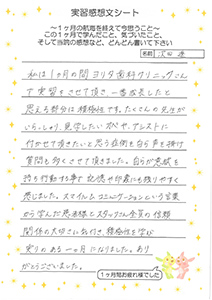 実習感想文シート
～1ヶ月の航海を終えて今思うこと～
この1ヶ月で学んだこと、気づいたこと、
そして当院の感想など、どんどん書いて下さい
私は1ヶ月の間ヨリタ歯科クリニックさん
で実習をさせて頂き、一番成長したと
思える部分は積極性です。たくさんの先生が
いらっしゃり、見学したい所や、アシストに
付かせて頂きたいと思う症例を自ら声を掛け
質問も多くさせて頂きました。自らが意識を
持ち行動する事で記憶や印象にも残りやすく
感じました。スマイルコミュニケーションという言葉
から学んだ患者様とスタッフさん全員の信頼
関係の大切さにも気付き、積極性を学び
実りのある一ヶ月になりました。あり
がとうございました。
1ヶ月間お疲れ様でした